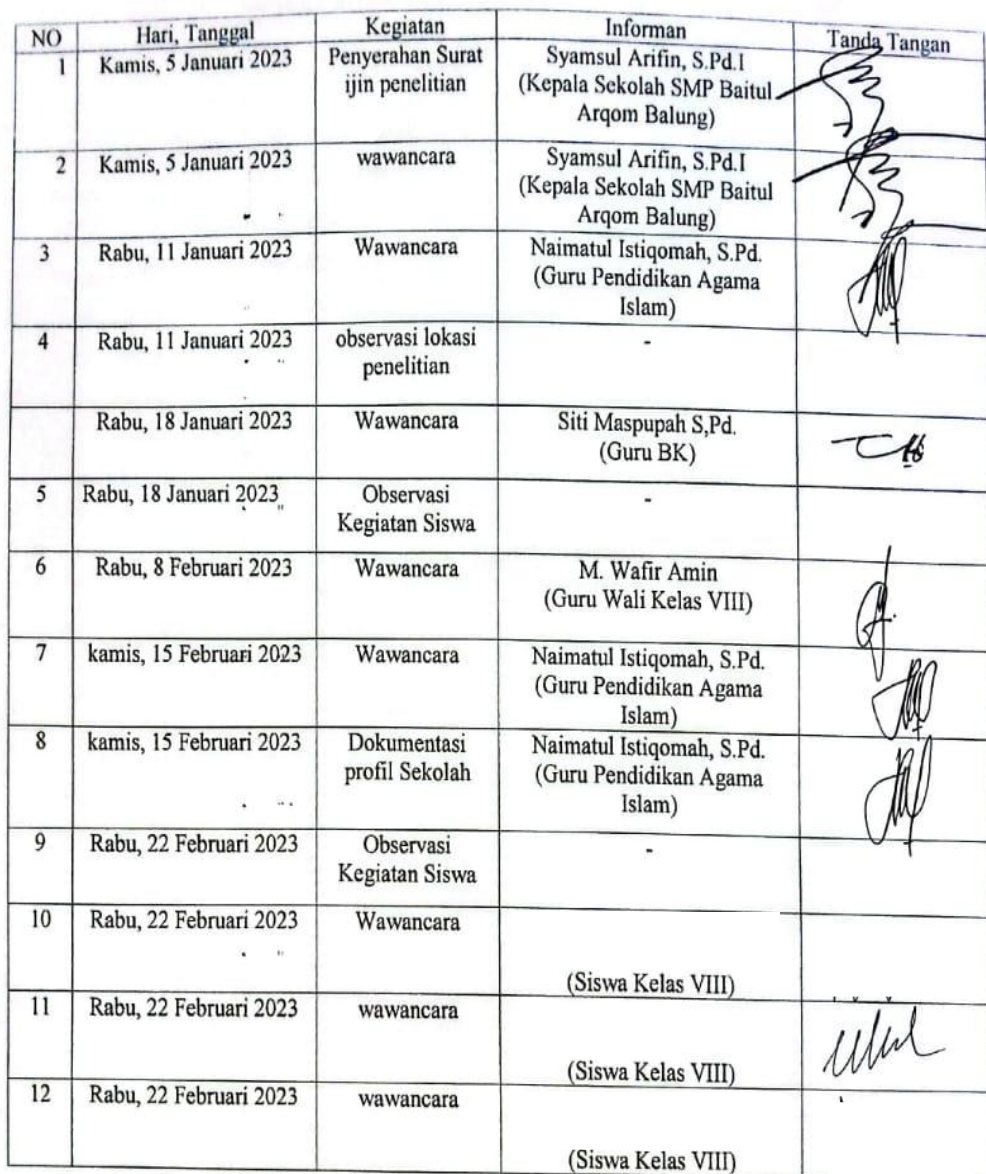 NO Hari, Tanggal Kegiatan Informan Tanda Tangan
1 Kamis, 5 Januari 2023 Penyerahan Surat Syamsul Arifin, S.Pd.I
ijin penelitian (Kepala Sekolah SMP Baitul
Arqom Balung)
2 Kamis, 5 Januari 2023 wawancara Syamsul Arifin, S.Pd.I
(Kepala Sekolah SMP Baitul
Arqom Balung)
3 Rabu, 11 Januari 2023 Wawancara Naimatul Istiqomah, S.Pd.
(Guru Pendidikan Agama
Islam)
4 Rabu, 11 Januari 2023 observasi lokasi -
penelitian
Rabu, 18 Januari 2023 Wawancara Siti Maspupah S,Pd.
(Guru BK)
5 Rabu, 18 Januari 2023 Observasi -
Kegiatan Siswa
6 Rabu, 8 Februari 2023 Wawancara M. Wafir Amin
(Guru Wali Kelas VIII)
7 kamis, 15 Februari 2023 Wawancara Naimatul Istiqomah, S.Pd.
(Guru Pendidikan Agama
Islam)
8 kamis, 15 Februari 2023 Dokumentasi Naimatul Istiqomah, S.Pd.
profil Sekolah (Guru Pendidikan Agama
Islam)
9 Rabu, 22 Februari 2023 Observasi -
Kegiatan Siswa
10 Rabu, 22 Februari 2023 Wawancara
(Siswa Kelas VIII)
11 Rabu, 22 Februari 2023 wawancara
(Siswa Kelas VIII)
12 Rabu, 22 Februari 2023 wawancara
(Siswa Kelas VIII)